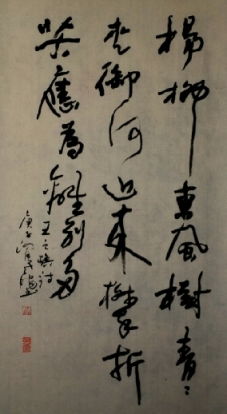 楊柳東風樹青〻
夾御河近來攀折
苦應為離別多
王之渙詩
庚午